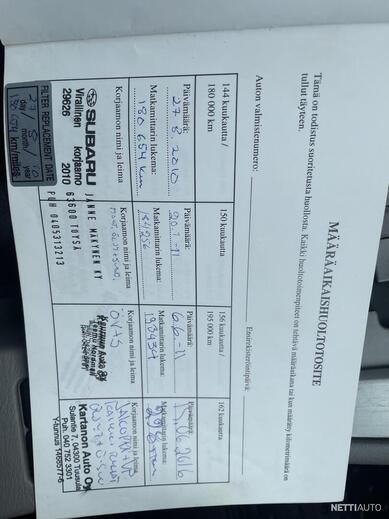 MÄÄRÄAIKAISHUOLTOTOSITE
Tämä on todistus suoritetusta huollosta. Kaikki huoltotoimenpiteet on tehtävä määräaikana tai kun määrätty kilometrimäärä on
tullut täyteen.
Auton valmistenumero:
Ensirekisteröintipäivä:
144 kuukautta /
180 000 km
Päivämäärä:
27.8.2010
Matkamittarin lukema:
180 654 km
Korjaamon nimi ja leima
SUBARU
Virallinen korjaamo
29626 2010
JANNE MÄKYNEN KY
63600 TÖYSÄ
PUH 0405313213
27/ 8 /10
day month year
180 654 km/miles
FILTER REPLACEMENT DATE
150 kuukautta
Päivämäärä:
Matkamittarin lukema:
Korjaamon nimi ja leima
156 kuukautta /
195 000 km
Päivämäärä:
6.6.-11
Matkamittarin lukema:
193434
Korjaamon nimi ja leima
162 kuukautta
Päivämäärä:
Matkamittarin lukema:
Korjaamon nimi ja leima
Kartanon Auto Oy
Sulantie 7, 04300 Tuusula
Puh. 040 752 3301
NETTIAUTO